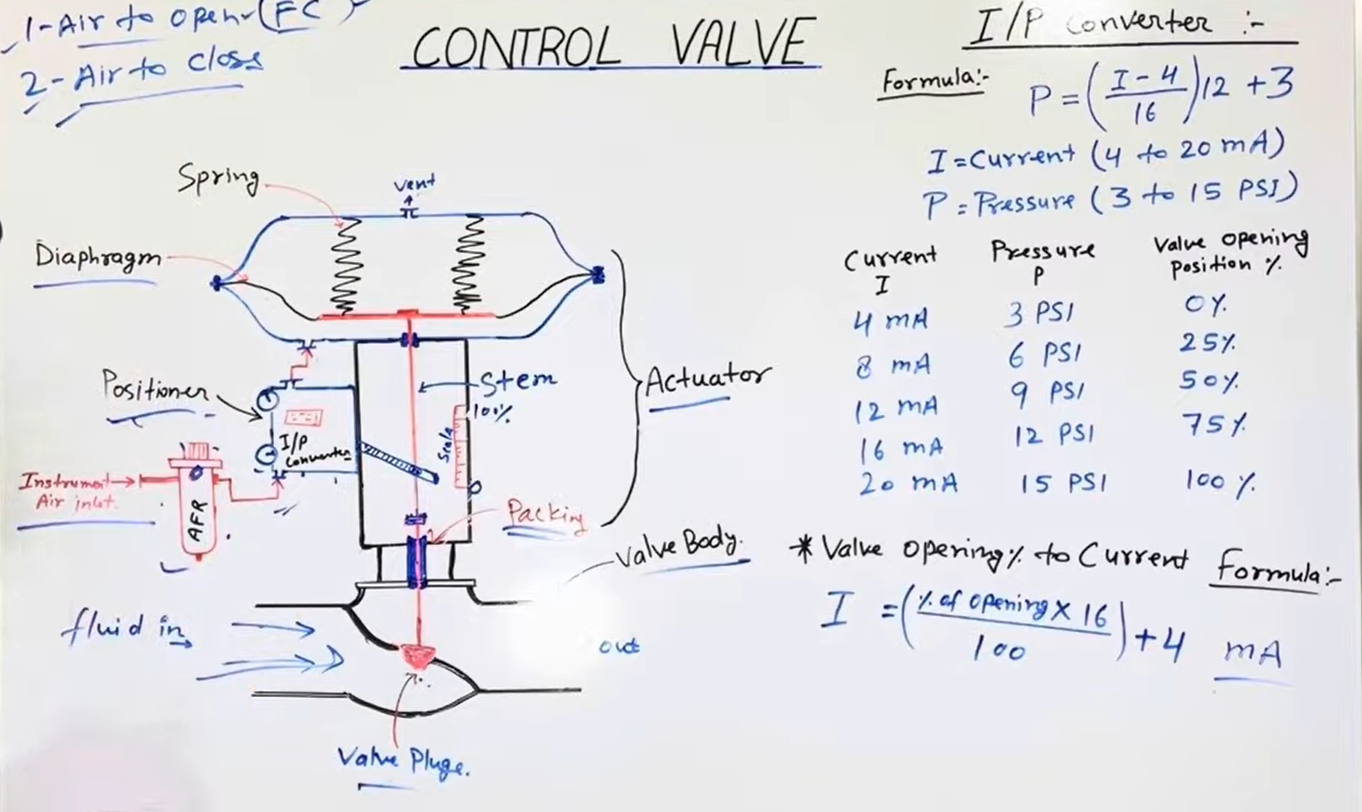 1-Air to open (FC)
2-Air to closs
CONTROL VALVE
I/P Converter :-
Formula:- P = (I - 4 / 16) 12 + 3
I = Current (4 to 20 mA)
P = Pressure (3 to 15 PSI)
Current I
Pressure P
Valve opening Position %
4 mA 3 PSI 0%
8 mA 6 PSI 25%
12 mA 9 PSI 50%
16 mA 12 PSI 75%
20 mA 15 PSI 100%
* Valve opening % to Current Formula:-
I = (% of opening × 16 / 100) + 4 mA
Spring
vent
Diaphragm
Positioner
Stem
Actuator
100%
Scale
0
I/P
Converter
Instrument
Air inlet.
AFR
Packing
Valve Body.
fluid in
out
Valve Pluge.